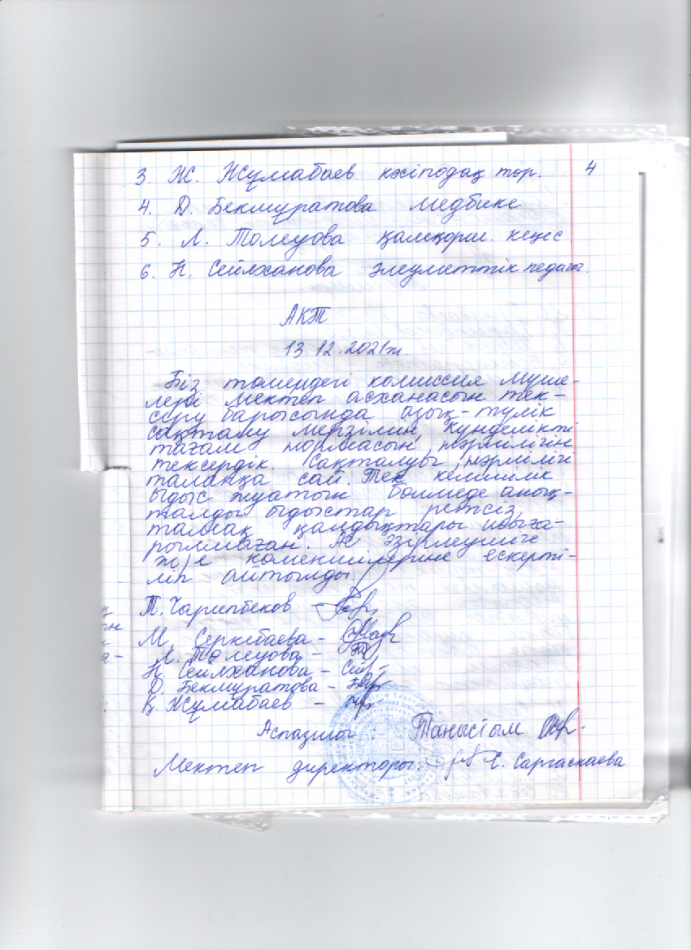 3. Ж. Жұмабаев кәсіподақ төр. 4
4. Д. Бекмуратова медбике
5. Л. Толеуова қамқорш. кеңес
6. Н. Сейлханова әлеуметтік педагог.
АКТ
13.12.2021ж.
Біз төмендегі комиссия мүше-
лері мектеп асханасын тек-
серу барысында азық-түлік
сақталу мерзімін, күнделікті
тағам нормасын, мәзірлігін
тексердік. Сақталуы,
талапқа сай. Тек кемшілік
ыдыс жуатын бөлмеде анық-
талды ыдыстар ретсіз,
тамақ қалдықтары шыға-
рылмаған. Ас әзірлеушіге
және көмекшілеріне ескерті-
ліп айтылды.
Т. Чарипбеков
М. Серкебаева -
Л. Толеуова -
Н. Сейлханова -
Д. Бекмуратова -
Қ. Жұмабаев -
Аспазшы: Таныстым
Мектеп директоры: Е. Саргаскаева